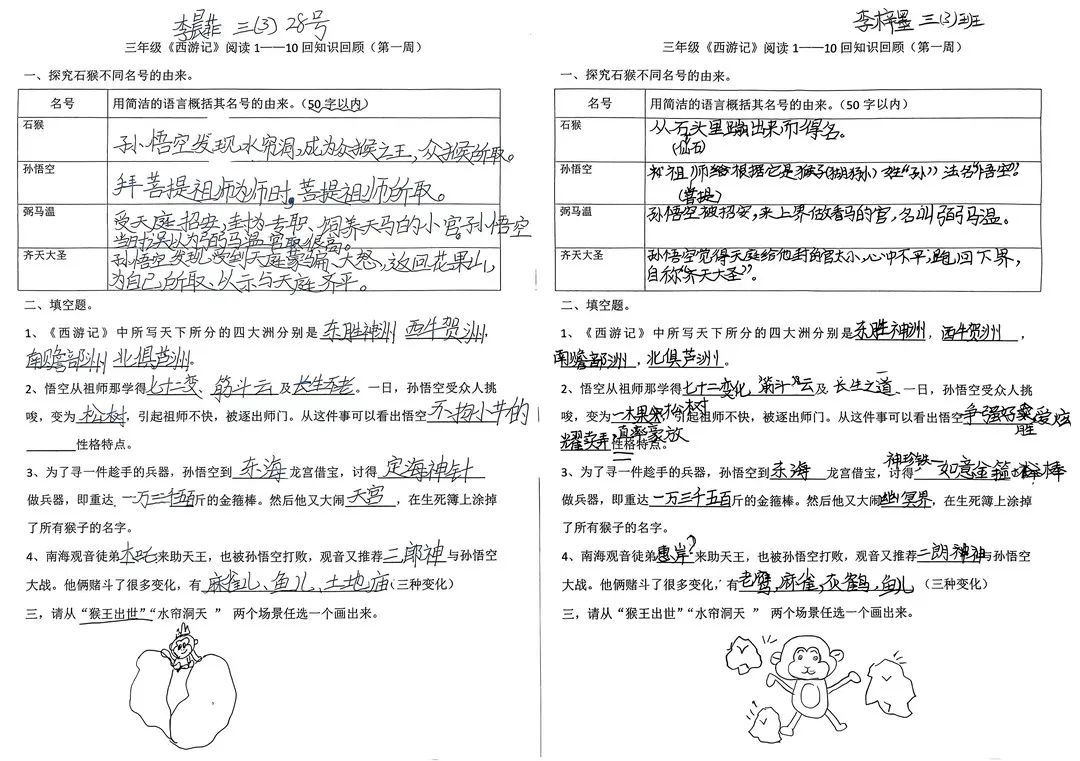 李晨菲 三(3) 28号
三年级《西游记》阅读1——10回知识回顾(第一周)
一、探究石猴不同名号的由来。
名号 用简洁的语言概括其名号的由来。(50字以内)
石猴
孙悟空发现水帘洞,成为众猴之王,众猴所取。
孙悟空
拜菩提祖师为师时,菩提祖师所取。
弼马温
受天庭招安,封为专职、饲养天马的小官孙悟空
当时误以为弼马温官职很高。
齐天大圣
孙悟空发现受到天庭蒙骗、大怒,返回花果山,
为自己所取、以示与天庭齐平。
二、填空题。
1、《西游记》中所写天下所分的四大洲分别是 东胜神洲 西牛贺洲,
南赡部洲 北俱芦洲。
2、悟空从祖师那学得七十二变、筋斗云及长生不老。一日,孙悟空受众人挑
唆,变为松树,引起祖师不快,被逐出师门。从这件事可以看出悟空
性格特点。
3、为了寻一件趁手的兵器,孙悟空到 东海 龙宫借宝,讨得 定海神针
做兵器,即重达 一万三千五百斤的金箍棒。然后他又大闹 天宫,在生死簿上涂掉
了所有猴子的名字。
4、南海观音徒弟木吒来助天王,也被孙悟空打败,观音又推荐二郎神与孙悟空
大战。他俩赌斗了很多变化,有 麻雀儿、鱼儿、土地庙(三种变化)
三,请从“猴王出世”“水帘洞天 ” 两个场景任选一个画出来。
李梓墨 三(3)班
三年级《西游记》阅读1——10回知识回顾(第一周)
一、探究石猴不同名号的由来。
名号 用简洁的语言概括其名号的由来。(50字以内)
石猴
从石头里蹦出来而得名。
(仙石)
孙悟空
祖师给根据它是猴子(猢狲)姓“孙” 法名“悟空”。
(菩提)
弼马温
孙悟空被招安,来上界做看马的官,名叫弼马温。
齐天大圣
孙悟空觉得天庭给他封的官太小,心中不平,跑回下界,
自称“齐天大圣”。
二、填空题。
1、《西游记》中所写天下所分的四大洲分别是东胜神洲,西牛贺洲,
南赡部洲,北俱芦洲。
2、悟空从祖师那学得七十二变化 筋斗云及 长生之道、一日,孙悟空受众人挑
唆,变为一棵松树 引起祖师不快,被逐出师门。从这件事可以看出悟空争强好胜 爱炫
耀卖弄,直率豪放 性格特点。
3、为了寻一件趁手的兵器,孙悟空到东海 龙宫借宝,讨得 神珍铁 如意金箍棒
做兵器,即重达 一万三千五百斤的金箍棒。然后他又大闹幽冥界,在生死簿上涂掉
了所有猴子的名字。
4、南海观音徒弟惠岸?来助天王,也被孙悟空打败,观音又推荐二郎神与孙悟空
大战。他俩赌斗了很多变化,有老鹰,麻雀,灰鹤,鱼儿 (三种变化)
三,请从“猴王出世”“水帘洞天 ” 两个场景任选一个画出来。